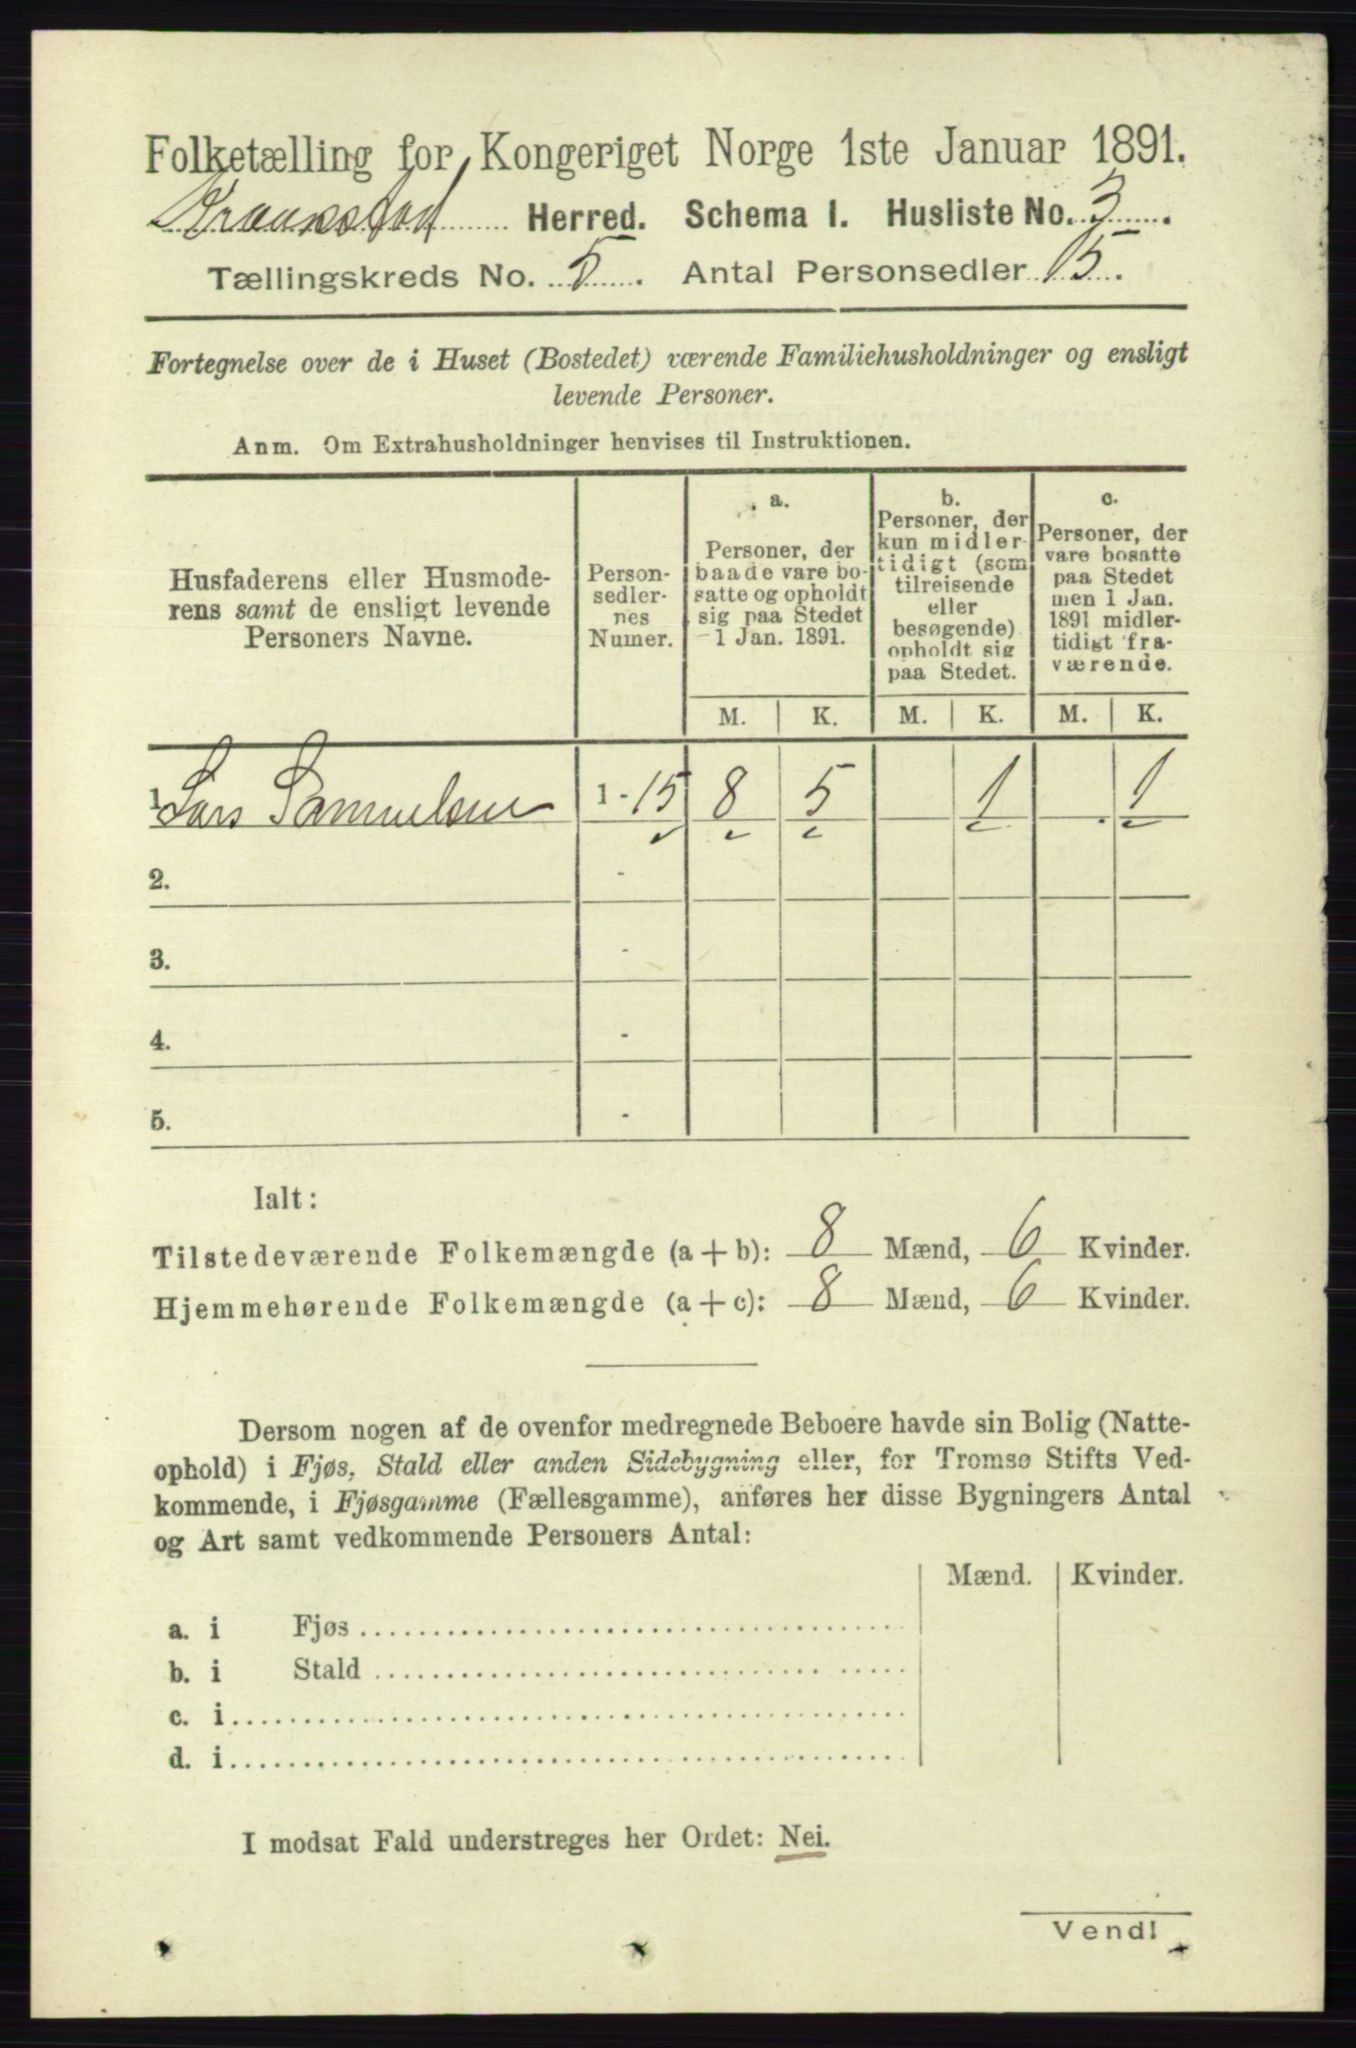 Folketælling for Kongeriget Norge 1ste Januar 1891.
Herred. Schema I. Husliste No. 3.
Tællingskreds No. 5. Antal Personsedler 15.
Fortegnelse over de i Huset (Bostedet) værende Familiehusholdninger og ensligt
levende Personer.
Anm. Om Extrahusholdninger henvises til Instruktionen.
Husfaderens eller Husmode-
rens samt de ensligt levende
Personers Navne.
Person-
sedler-
nes
Numer.
a.
Personer, der
baade vare bo-
satte og opholdt
sig paa Stedet
1 Jan. 1891.
b.
Personer, der
kun midler-
tidigt (som
tilreisende
eller
besøgende)
opholdt sig
paa Stedet.
c.
Personer, der
vare bosatte
paa Stedet
men 1 Jan.
1891 midler-
tidigt fra-
værende.
M. K. M. K. M. K.
1. Lars Samuelsen 1-15 8 5 1 1
2. -
3. -
4. -
5. -
Ialt:
Tilstedeværende Folkemængde (a + b): 8 Mænd, 6 Kvinder.
Hjemmehørende Folkemængde (a + c): 8 Mænd, 6 Kvinder.
Dersom nogen af de ovenfor medregnede Beboere havde sin Bolig (Natte-
ophold) i Fjøs, Stald eller anden Sidebygning eller, for Tromsø Stifts Ved-
kommende, i Fjøsgamme (Fællesgamme), anføres her disse Bygningers Antal
og Art samt vedkommende Personers Antal:
Mænd. Kvinder.
a. i Fjøs
b. i Stald
c. i
d. i
I modsat Fald understreges her Ordet: Nei.
Vend!